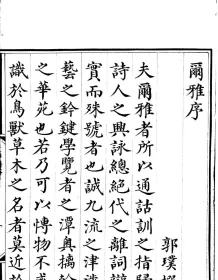 爾雅序
郭璞撰
夫爾雅者所以通詁訓之指歸
詩人之興詠總絕代之離詞辯
實而殊號者也誠九流之津涉
藝之鈐鍵學覽者之潭奧摛翰
之華苑也若乃可以博物不惑
識於鳥獸草木之名者莫近於